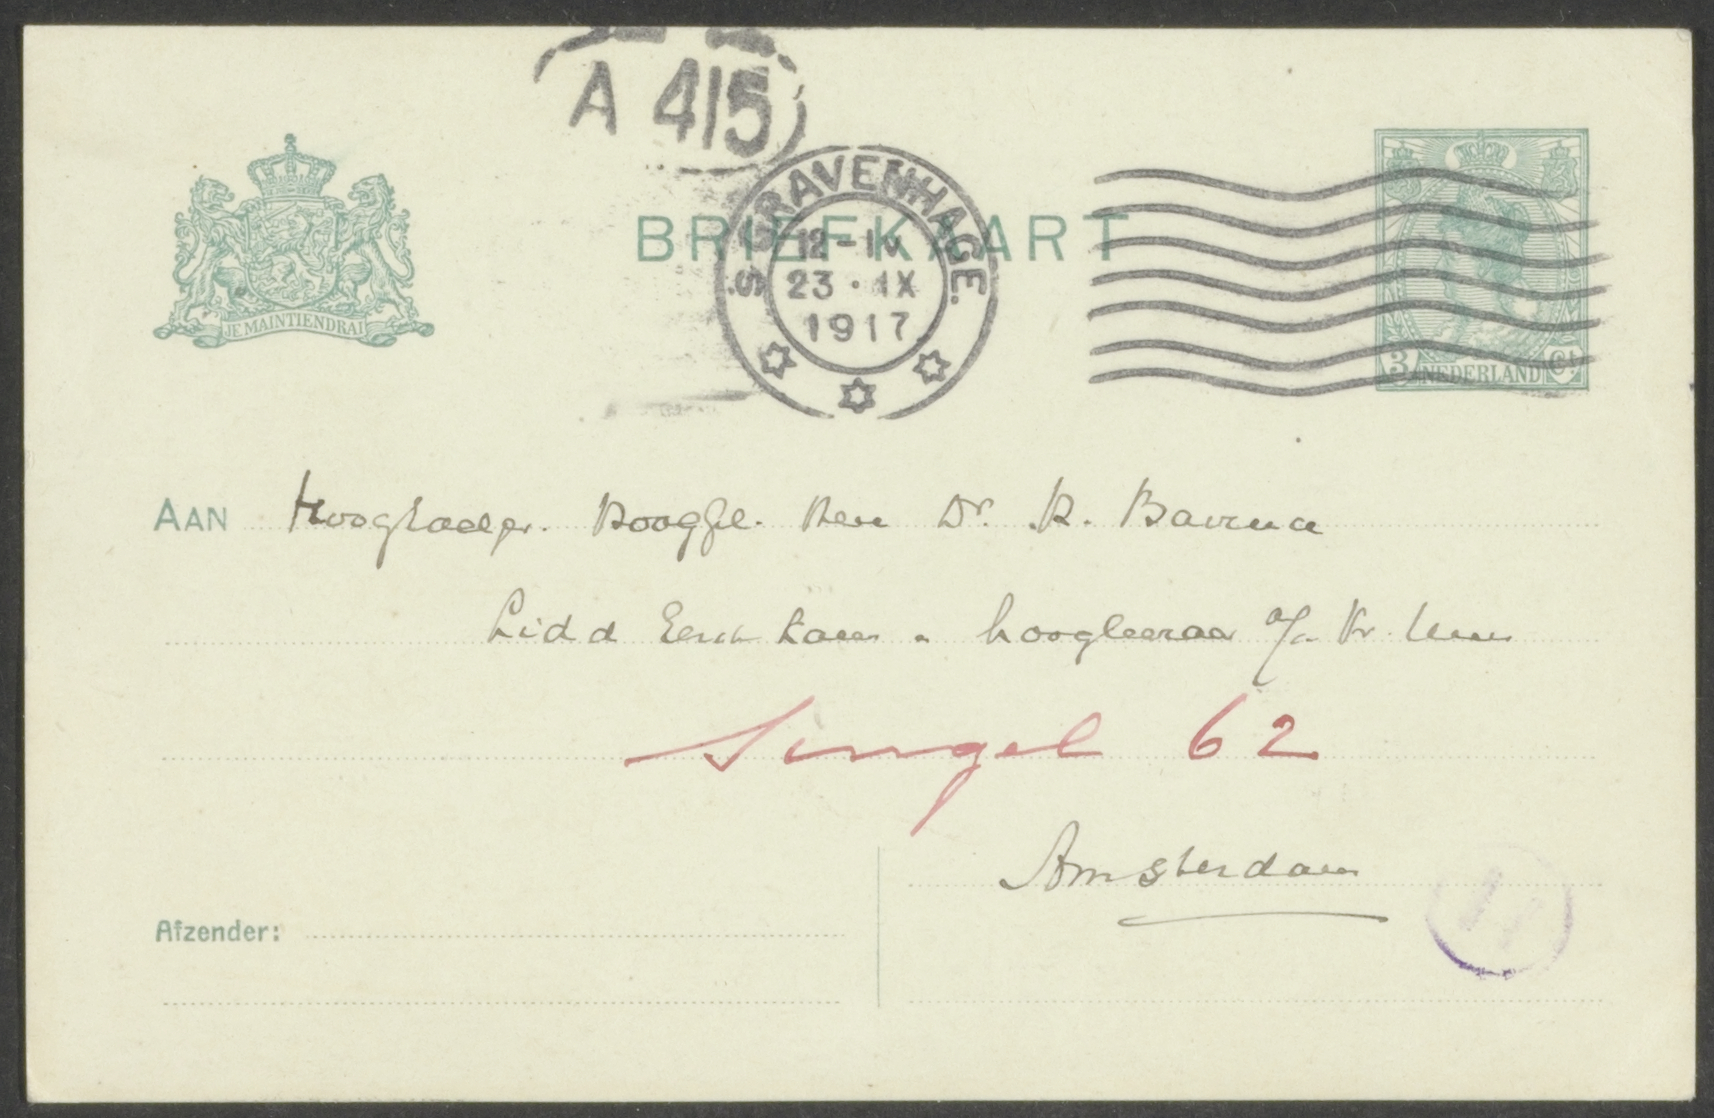 A 415
'S GRAVENHAGE.
12-1N
23 · IX
1917
JE MAINTIENDRAI
BRIEFKAART
3 NEDERLAND Ct
AAN Dr. Bavinck
Lid d Eerste Kamer hoogleeraar a/d Vr. Univ
Singel 62
Amsterdam
Afzender: